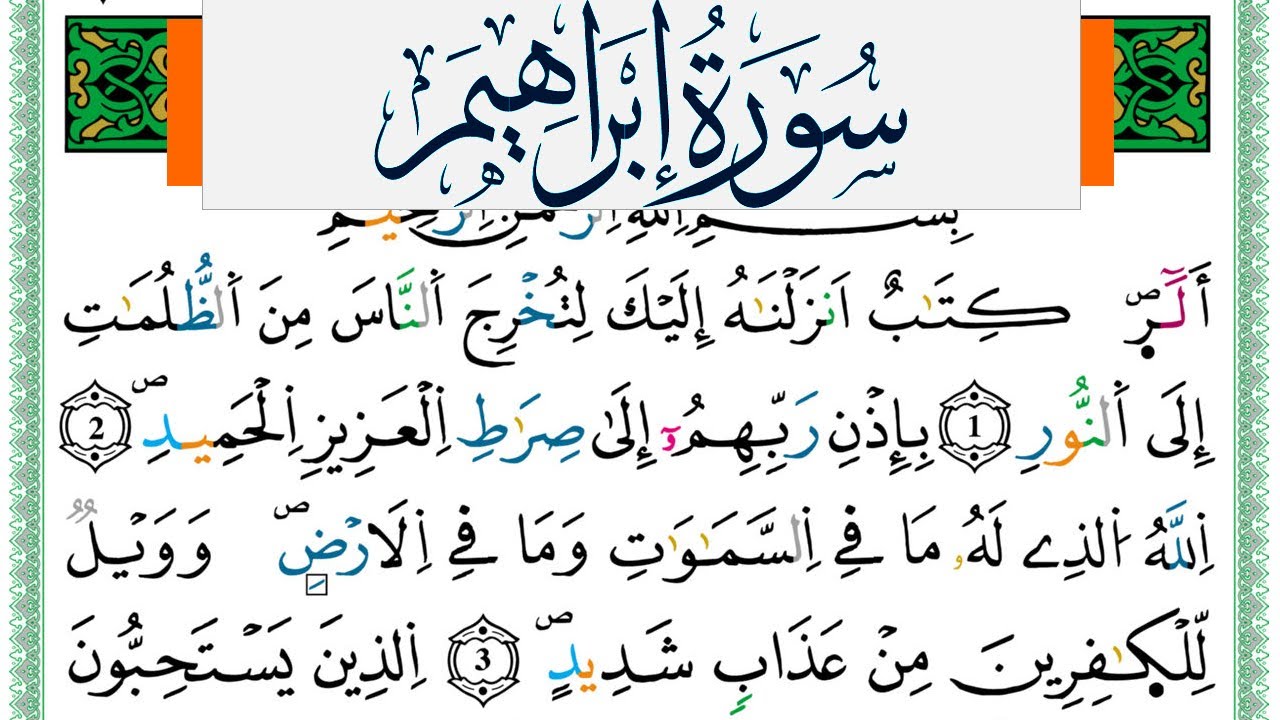 سُورَةُ إِبْرَاهِيمَ
بِسْمِ اِ۬للَّهِ اِ۬لرَّحْمَٰنِ اِ۬لرَّحِيمِ
أَلَٓرۖ كِتَٰبٌ اَنزَلْنَٰهُ إِلَيْكَ لِتُخْرِجَ اَ۬لنَّاسَ مِنَ اَ۬لظُّلُمَٰتِ
إِلَى اَ۬لنُّورِ 1 بِإِذْنِ رَبِّهِمُۥٓ إِلَىٰ صِرَٰطِ اِ۬لْعَزِيزِ اِ۬لْحَمِيدِۖ 2
اِ۬للَّهِ اِ۬لذِے لَهُۥ مَا فِے اِ۬لسَّمَٰوَٰتِ وَمَا فِے اِ۬لَارْضِۖ وَوَيْلٞ
لِّلْكٰ۪فِرِينَ مِنْ عَذَابٖ شَدِيدٍۖ 3 اِ۬لذِينَ يَسْتَحِبُّونَ